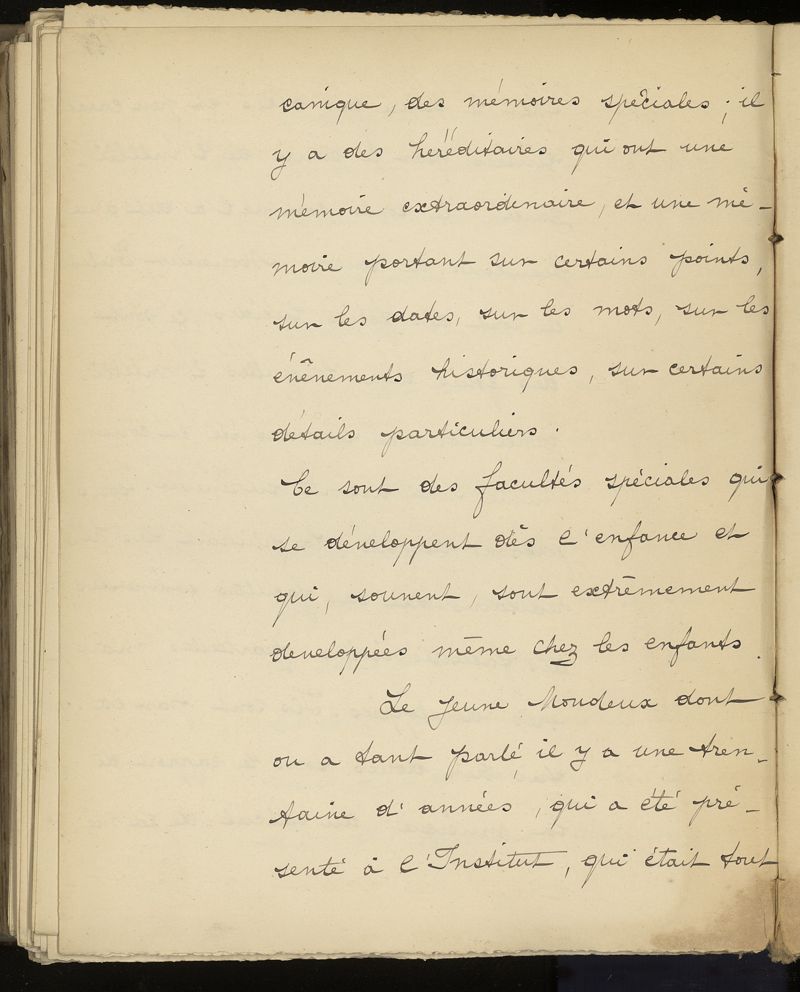 canique, des mémoires spéciales ; il
y a des héréditaires qui ont une
mémoire extraordinaire, et une mé-
moire portant sur certains points,
sur les dates, sur les mots, sur les
événements historiques, sur certains
détails particuliers.
Ce sont des facultés spéciales qui
se développent dès l'enfance et
qui, souvent, sont extrêmement
developpées même chez les enfants.
Le jeune Moudeux dont
on a tant parlé il y a une tren-
taine d'années, qui a été pré-
senté à l'Institut, qui était tout